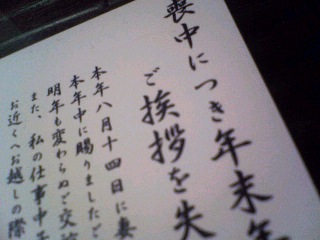 喪中につき年末年
ご挨拶を失
本年八月十四日に妻
本年中に賜りましたご
明年も変わらぬご交
また、私の仕事中
お近くへお越しの際